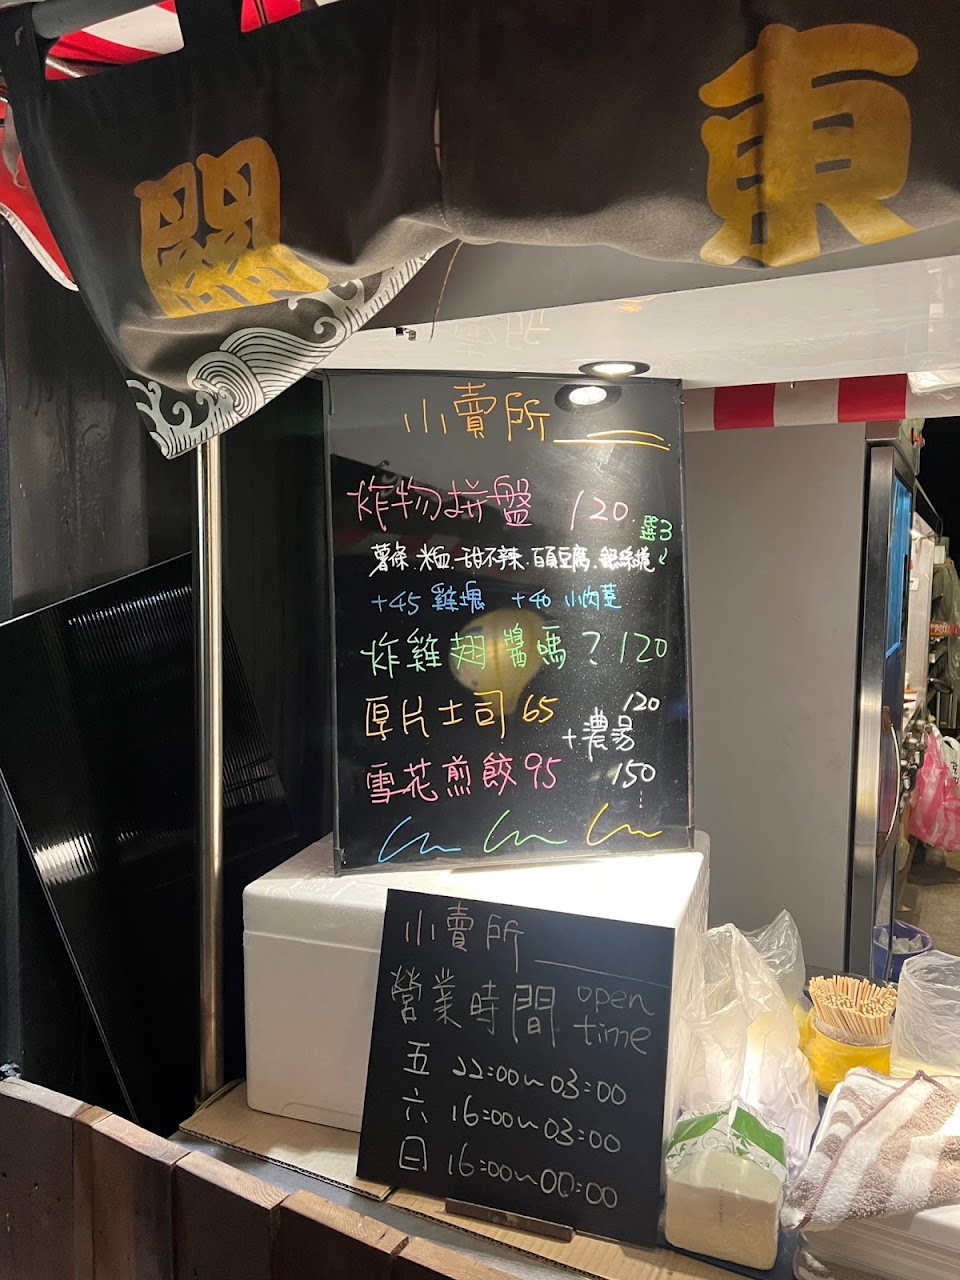 關東
小賣所
炸物拼盤 120
選3
薯條.米血.甜不辣.百頁豆腐.銀絲捲
+45 雞塊 +40 小肉荳
炸雞翅 醬嗎? 120
厚片士司 65
120
+濃湯
雪花煎餃 95 150
小賣所
營業時間 open time
五 22:00~03:00
六 16:00~03:00
日 16:00~00:00